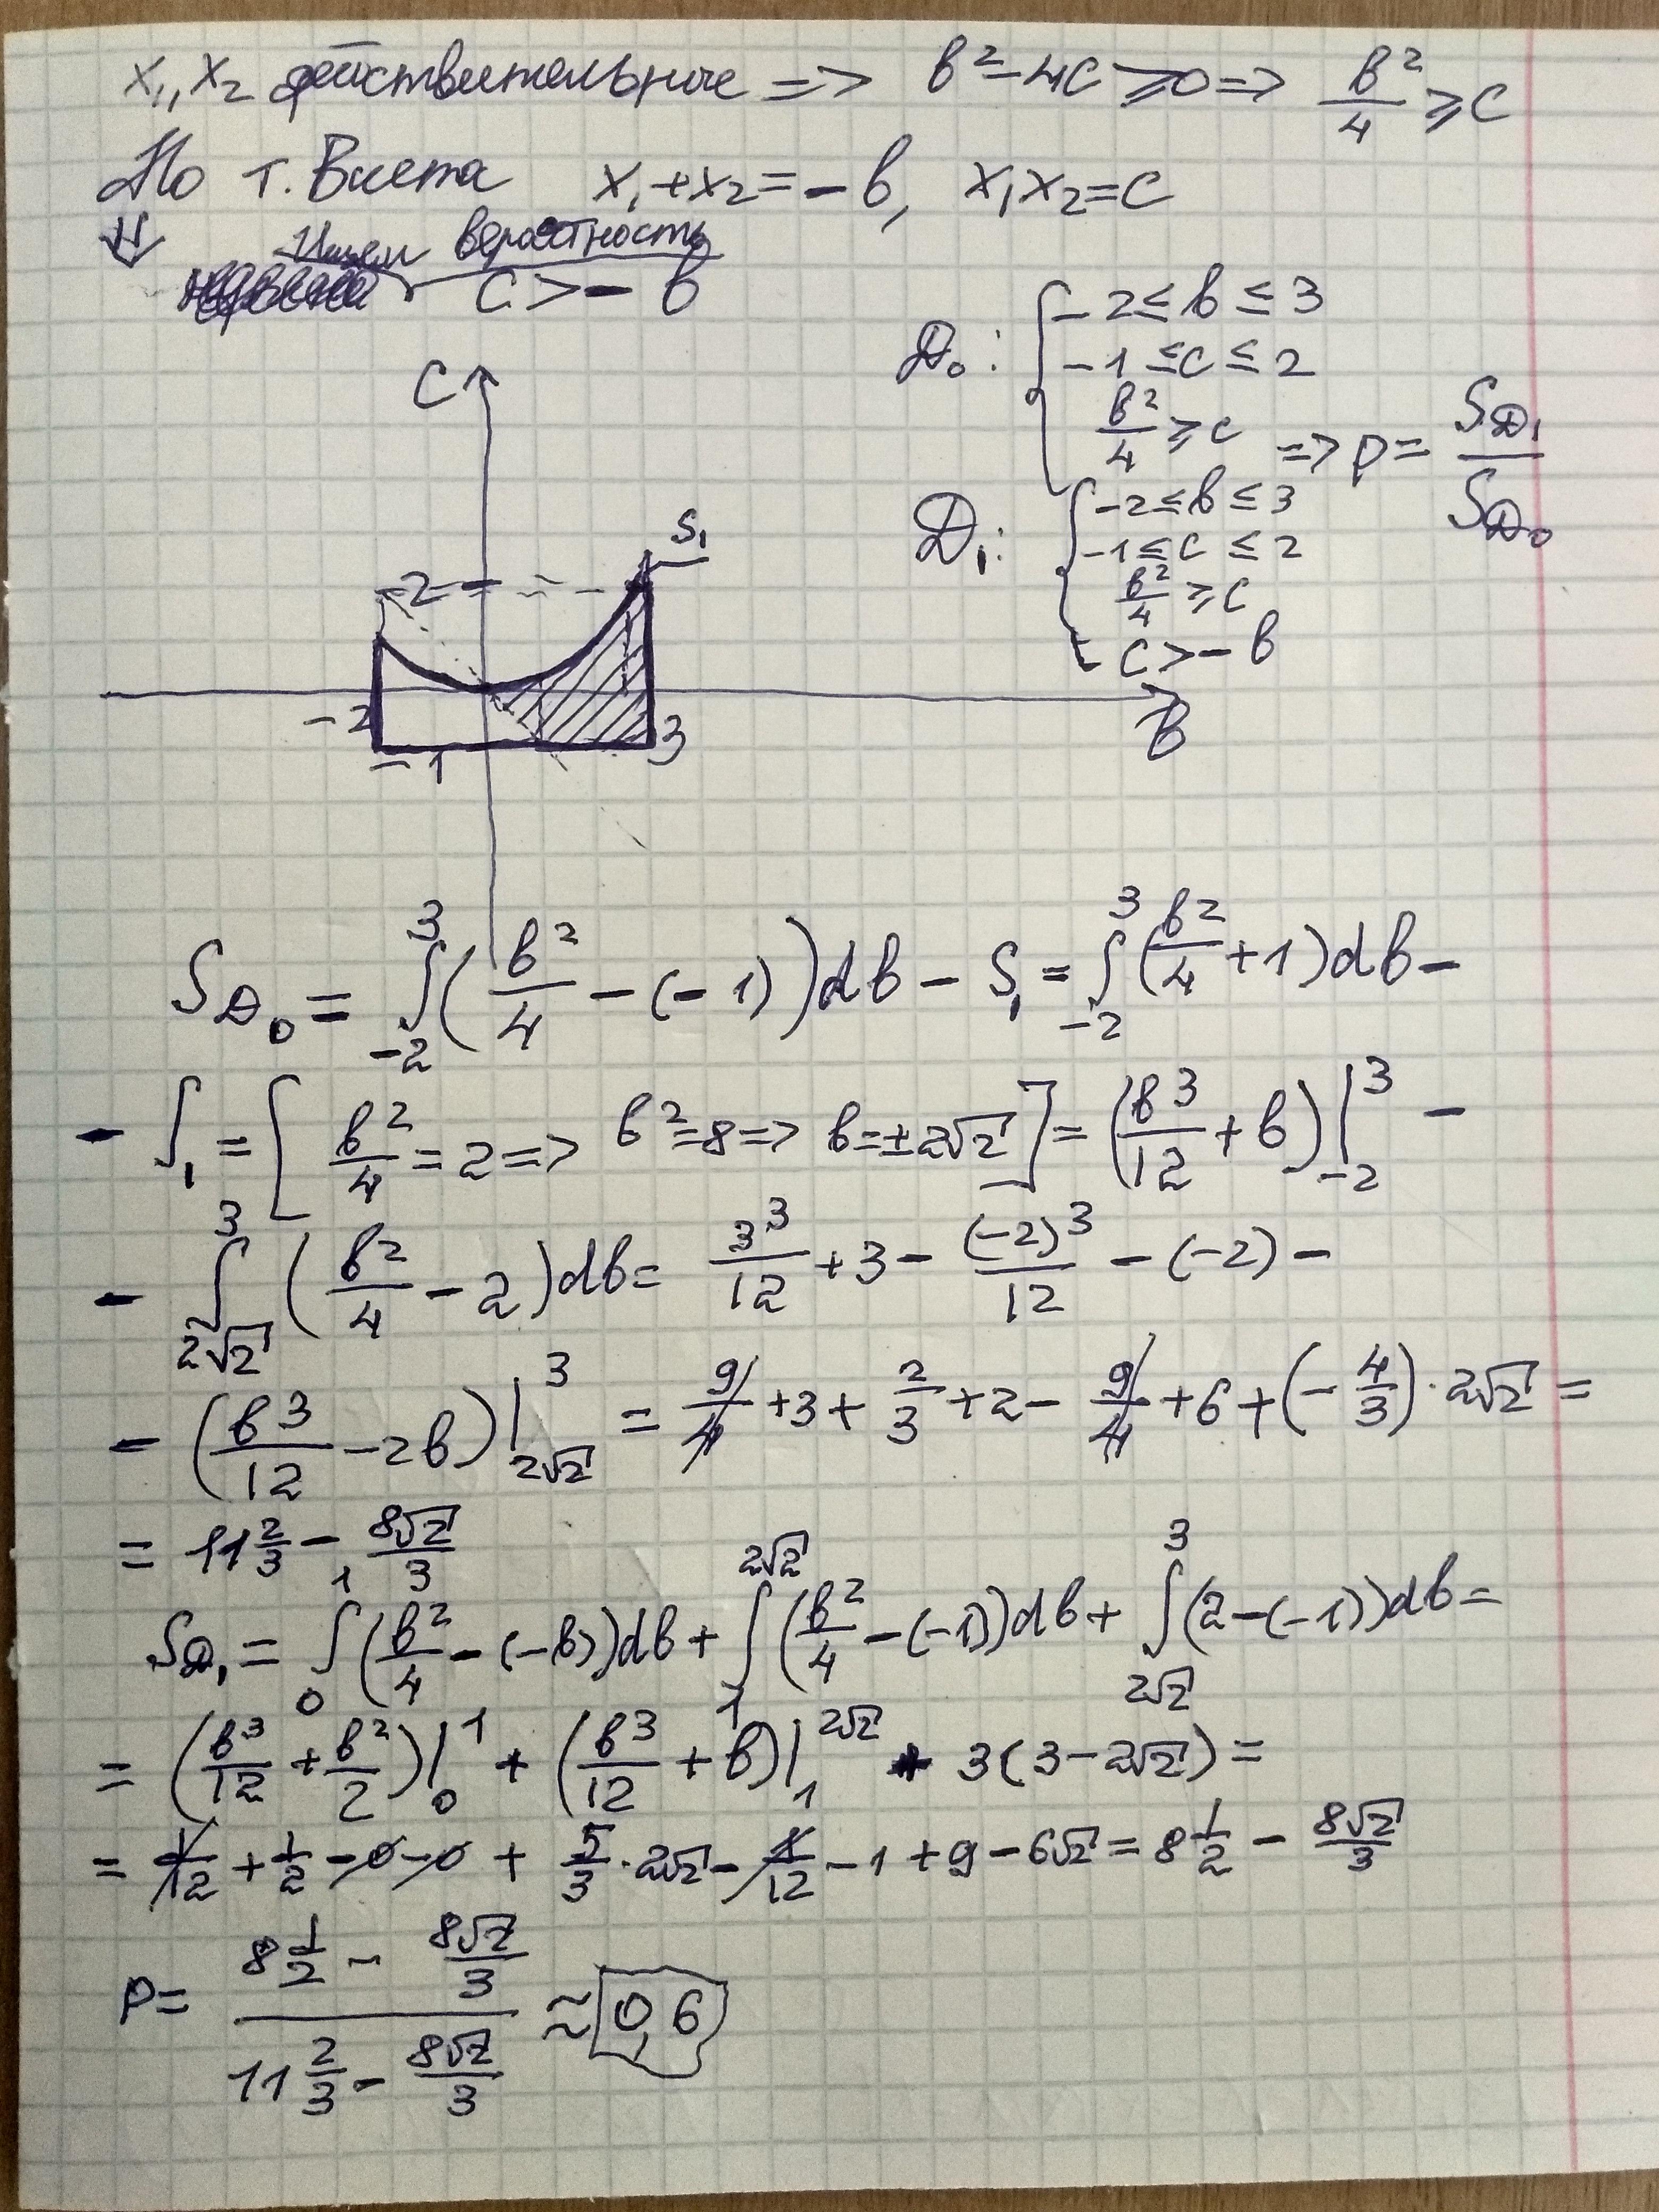 x₁, x₂ действительные => b² - 4c ≥ 0 => b²/4 ≥ c
По т. Виета x₁ + x₂ = -b, x₁x₂ = c
⇓ Ищем вероятность
c > -b
D₀: { -2 ≤ b ≤ 3
-1 ≤ c ≤ 2
b²/4 ≥ c => p = S_D₁ / S_D₀
D₁: { -2 ≤ b ≤ 3
-1 ≤ c ≤ 2
b²/4 ≥ c
c > -b
C
S₁
2
-2
3
-1
B
S_D₀ = ∫₋₂³ (b²/4 - (-1)) db - S₁ = ∫₋₂³ (b²/4 + 1) db -
- S₁ = [b²/4 = 2 => b² = 8 => b = ±2√2] = (b³/12 + b)|₋₂³ -
- ∫_{2√2}^{3} (b²/4 - 2) db = 3³/12 + 3 - (-2)³/12 - (-2) -
- (b³/12 - 2b)|_{2√2}^{3} = 9/4 + 3 + 2/3 + 2 - 9/4 + 6 + (-4/3) · 2√2 =
= 11 2/3 - 8√2/3
S_D₁ = ∫₀¹ (b²/4 - (-b)) db + ∫₁^{2√2} (b²/4 - (-1)) db + ∫_{2√2}^{3} (2 - (-1)) db =
= (b³/12 + b²/2)|₀¹ + (b³/12 + b)|₁^{2√2} + 3(3 - 2√2) =
= 1/12 + 1/2 - 0 - 0 + 5/3 · 2√2 - 1/12 - 1 + 9 - 6√2 = 8 1/2 - 8√2/3
p = (8 1/2 - 8√2/3) / (11 2/3 - 8√2/3) ≈ 0,6